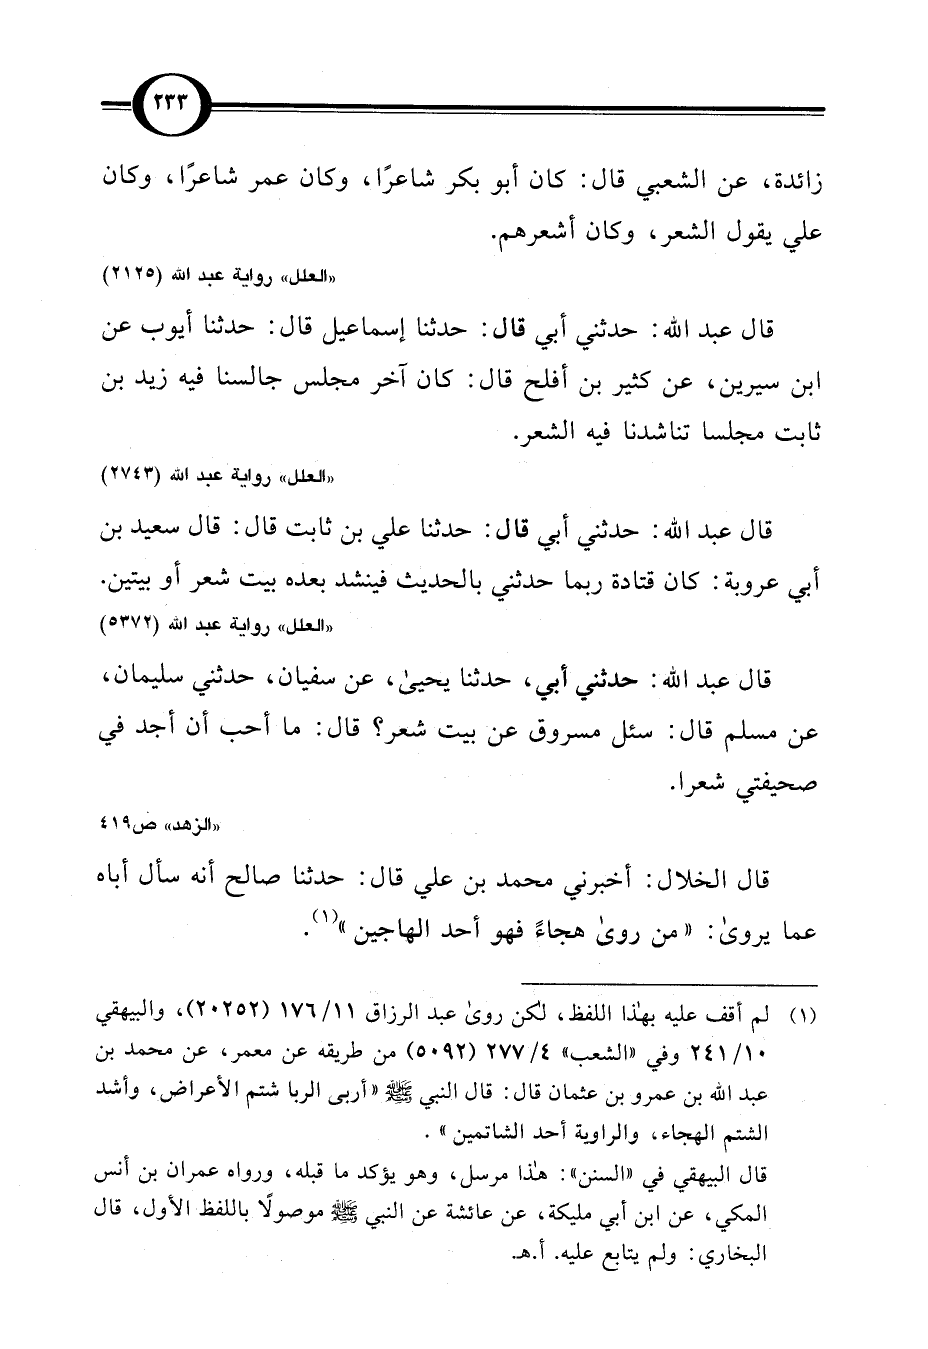 ٢٣٣
زائدة، عن الشعبي قال: كان أبو بكر شاعرًا، وكان عمر شاعرًا، وكان
علي يقول الشعر، وكان أشعرهم.
«العلل» رواية عبد الله (٢١٢٥)
قال عبد الله: حدثني أبي قال: حدثنا إسماعيل قال: حدثنا أيوب عن
ابن سيرين، عن كثير بن أفلح قال: كان آخر مجلس جالسنا فيه زيد بن
ثابت مجلسا تناشدنا فيه الشعر.
«العلل» رواية عبد الله (٢٧٤٣)
قال عبد الله: حدثني أبي قال: حدثنا علي بن ثابت قال: قال سعيد بن
أبي عروبة: كان قتادة ربما حدثني بالحديث فينشد بعده بيت شعر أو بيتين.
«العلل» رواية عبد الله (٥٣٧٢)
قال عبد الله: حدثني أبي، حدثنا يحيىٰ، عن سفيان، حدثني سليمان،
عن مسلم قال: سئل مسروق عن بيت شعر؟ قال: ما أحب أن أجد في
صحيفتي شعرا.
«الزهد» ص٤١٩
قال الخلال: أخبرني محمد بن علي قال: حدثنا صالح أنه سأل أباه
عما يروىٰ: «من روىٰ هجاءً فهو أحد الهاجين»(١).
(١) لم أقف عليه بهٰذا اللفظ، لكن روىٰ عبد الرزاق ١١/ ١٧٦ (٢٠٢٥٢)، والبيهقي
١٠/ ٢٤١ وفي «الشعب» ٤/ ٢٧٧ (٥٠٩٢) من طريقه عن معمر، عن محمد بن
عبد الله بن عمرو بن عثمان قال: قال النبي ﷺ «أربى الربا شتم الأعراض، وأشد
الشتم الهجاء، والراوية أحد الشاتمين».
قال البيهقي في «السنن»: هٰذا مرسل، وهو يؤكد ما قبله، ورواه عمران بن أنس
المكي، عن ابن أبي مليكة، عن عائشة عن النبي ﷺ موصولًا باللفظ الأول، قال
البخاري: ولم يتابع عليه. أ.هـ.